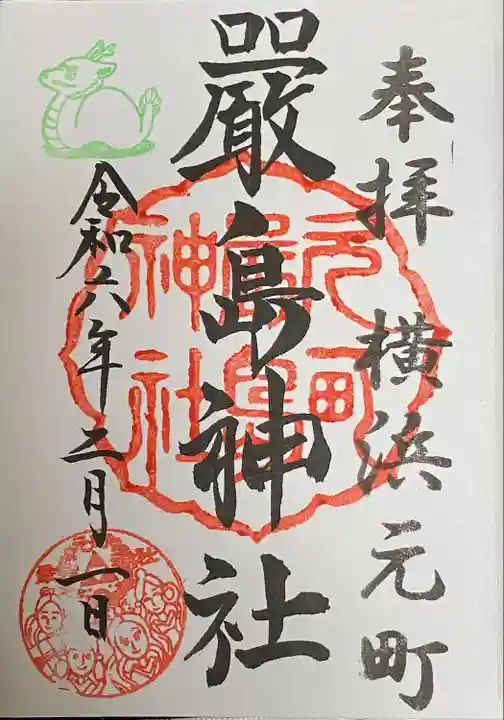 奉拝 横浜元町
嚴島神社
元町
嚴島
神社
令和六年二月一日